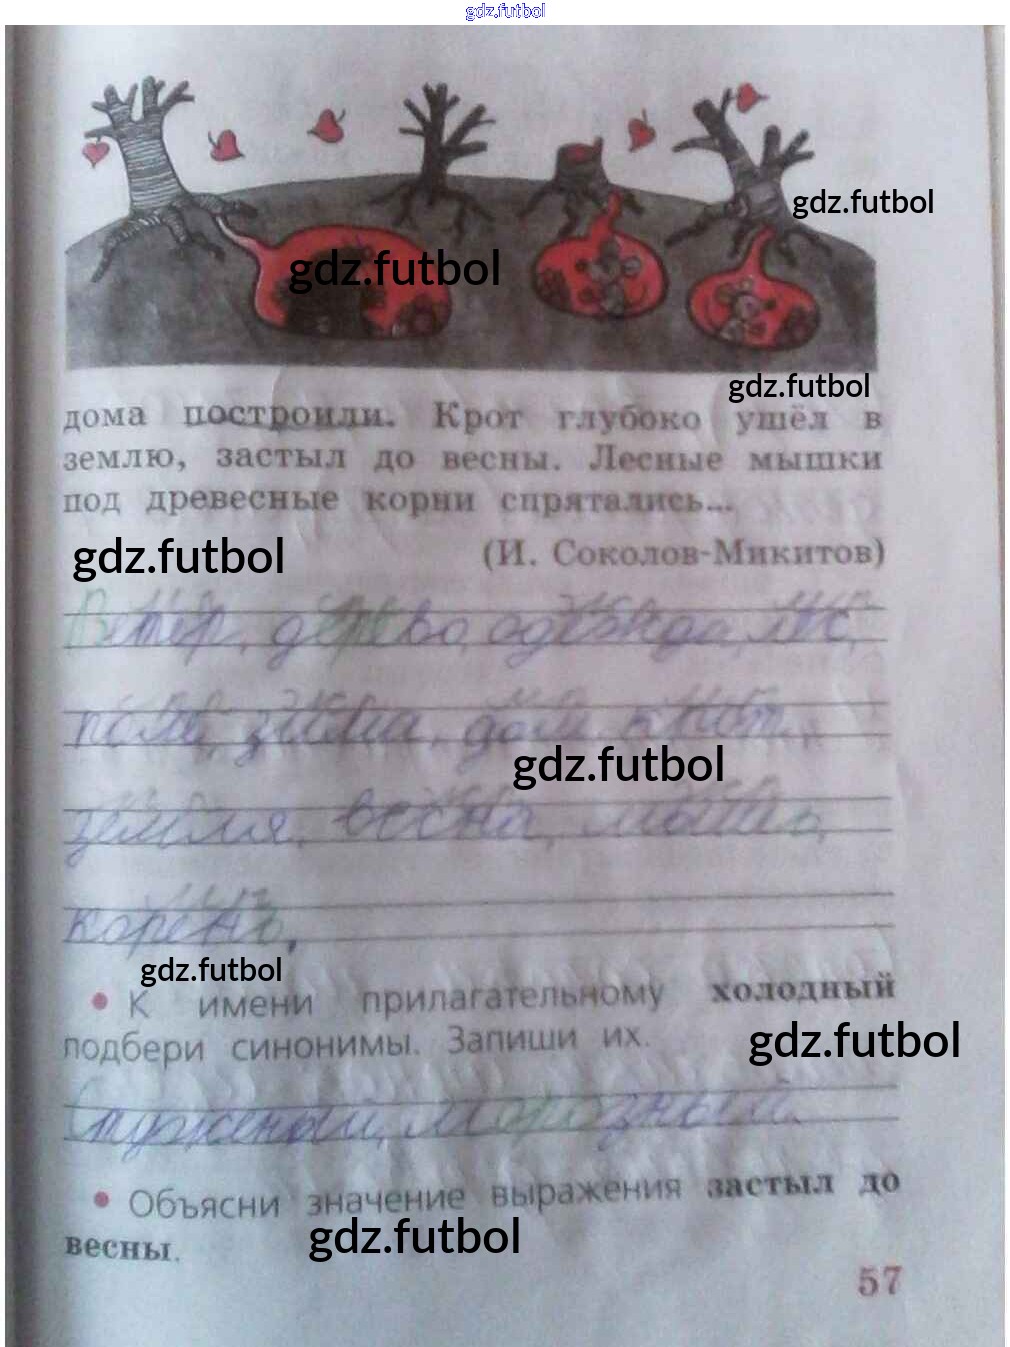 gdz.futbol
gdz.futbol
gdz.futbol
gdz.futbol
дома построили. Крот глубоко ушёл в
землю, застыл до весны. Лесные мышки
под древесные корни спрятались...
gdz.futbol
(И. Соколов-Микитов)
Ветер, дерево, одежда, лес,
поле, зима, дом, крот,
gdz.futbol
земля, весна, мышь,
корень,
gdz.futbol
• К имени прилагательному холодный
подбери синонимы. Запиши их.
gdz.futbol
Стуженый, морозный.
• Объясни значение выражения застыл до
весны.
gdz.futbol
57